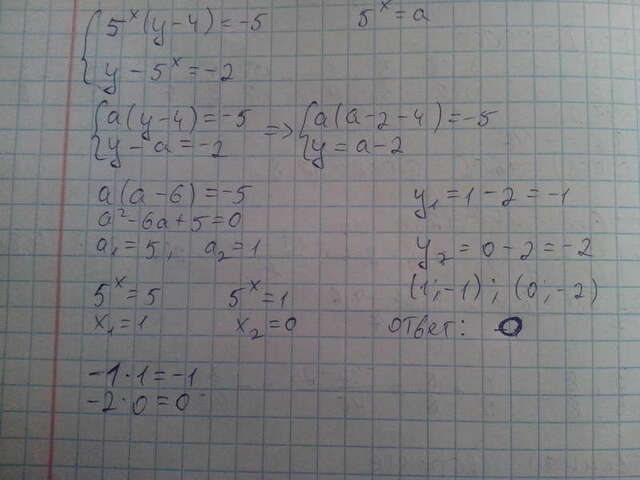 5^x(y-4)=-5
5^x=a
y-5^x=-2
a(y-4)=-5
y-a=-2
=>
a(a-2-4)=-5
y=a-2
a(a-6)=-5
a²-6a+5=0
a₁=5; a₂=1
5^x=5 5^x=1
x₁=1 x₂=0
y₁=1-2=-1
y₂=0-2=-2
(1;-1); (0;-2)
ответ: 0
-1·1=-1
-2·0=0